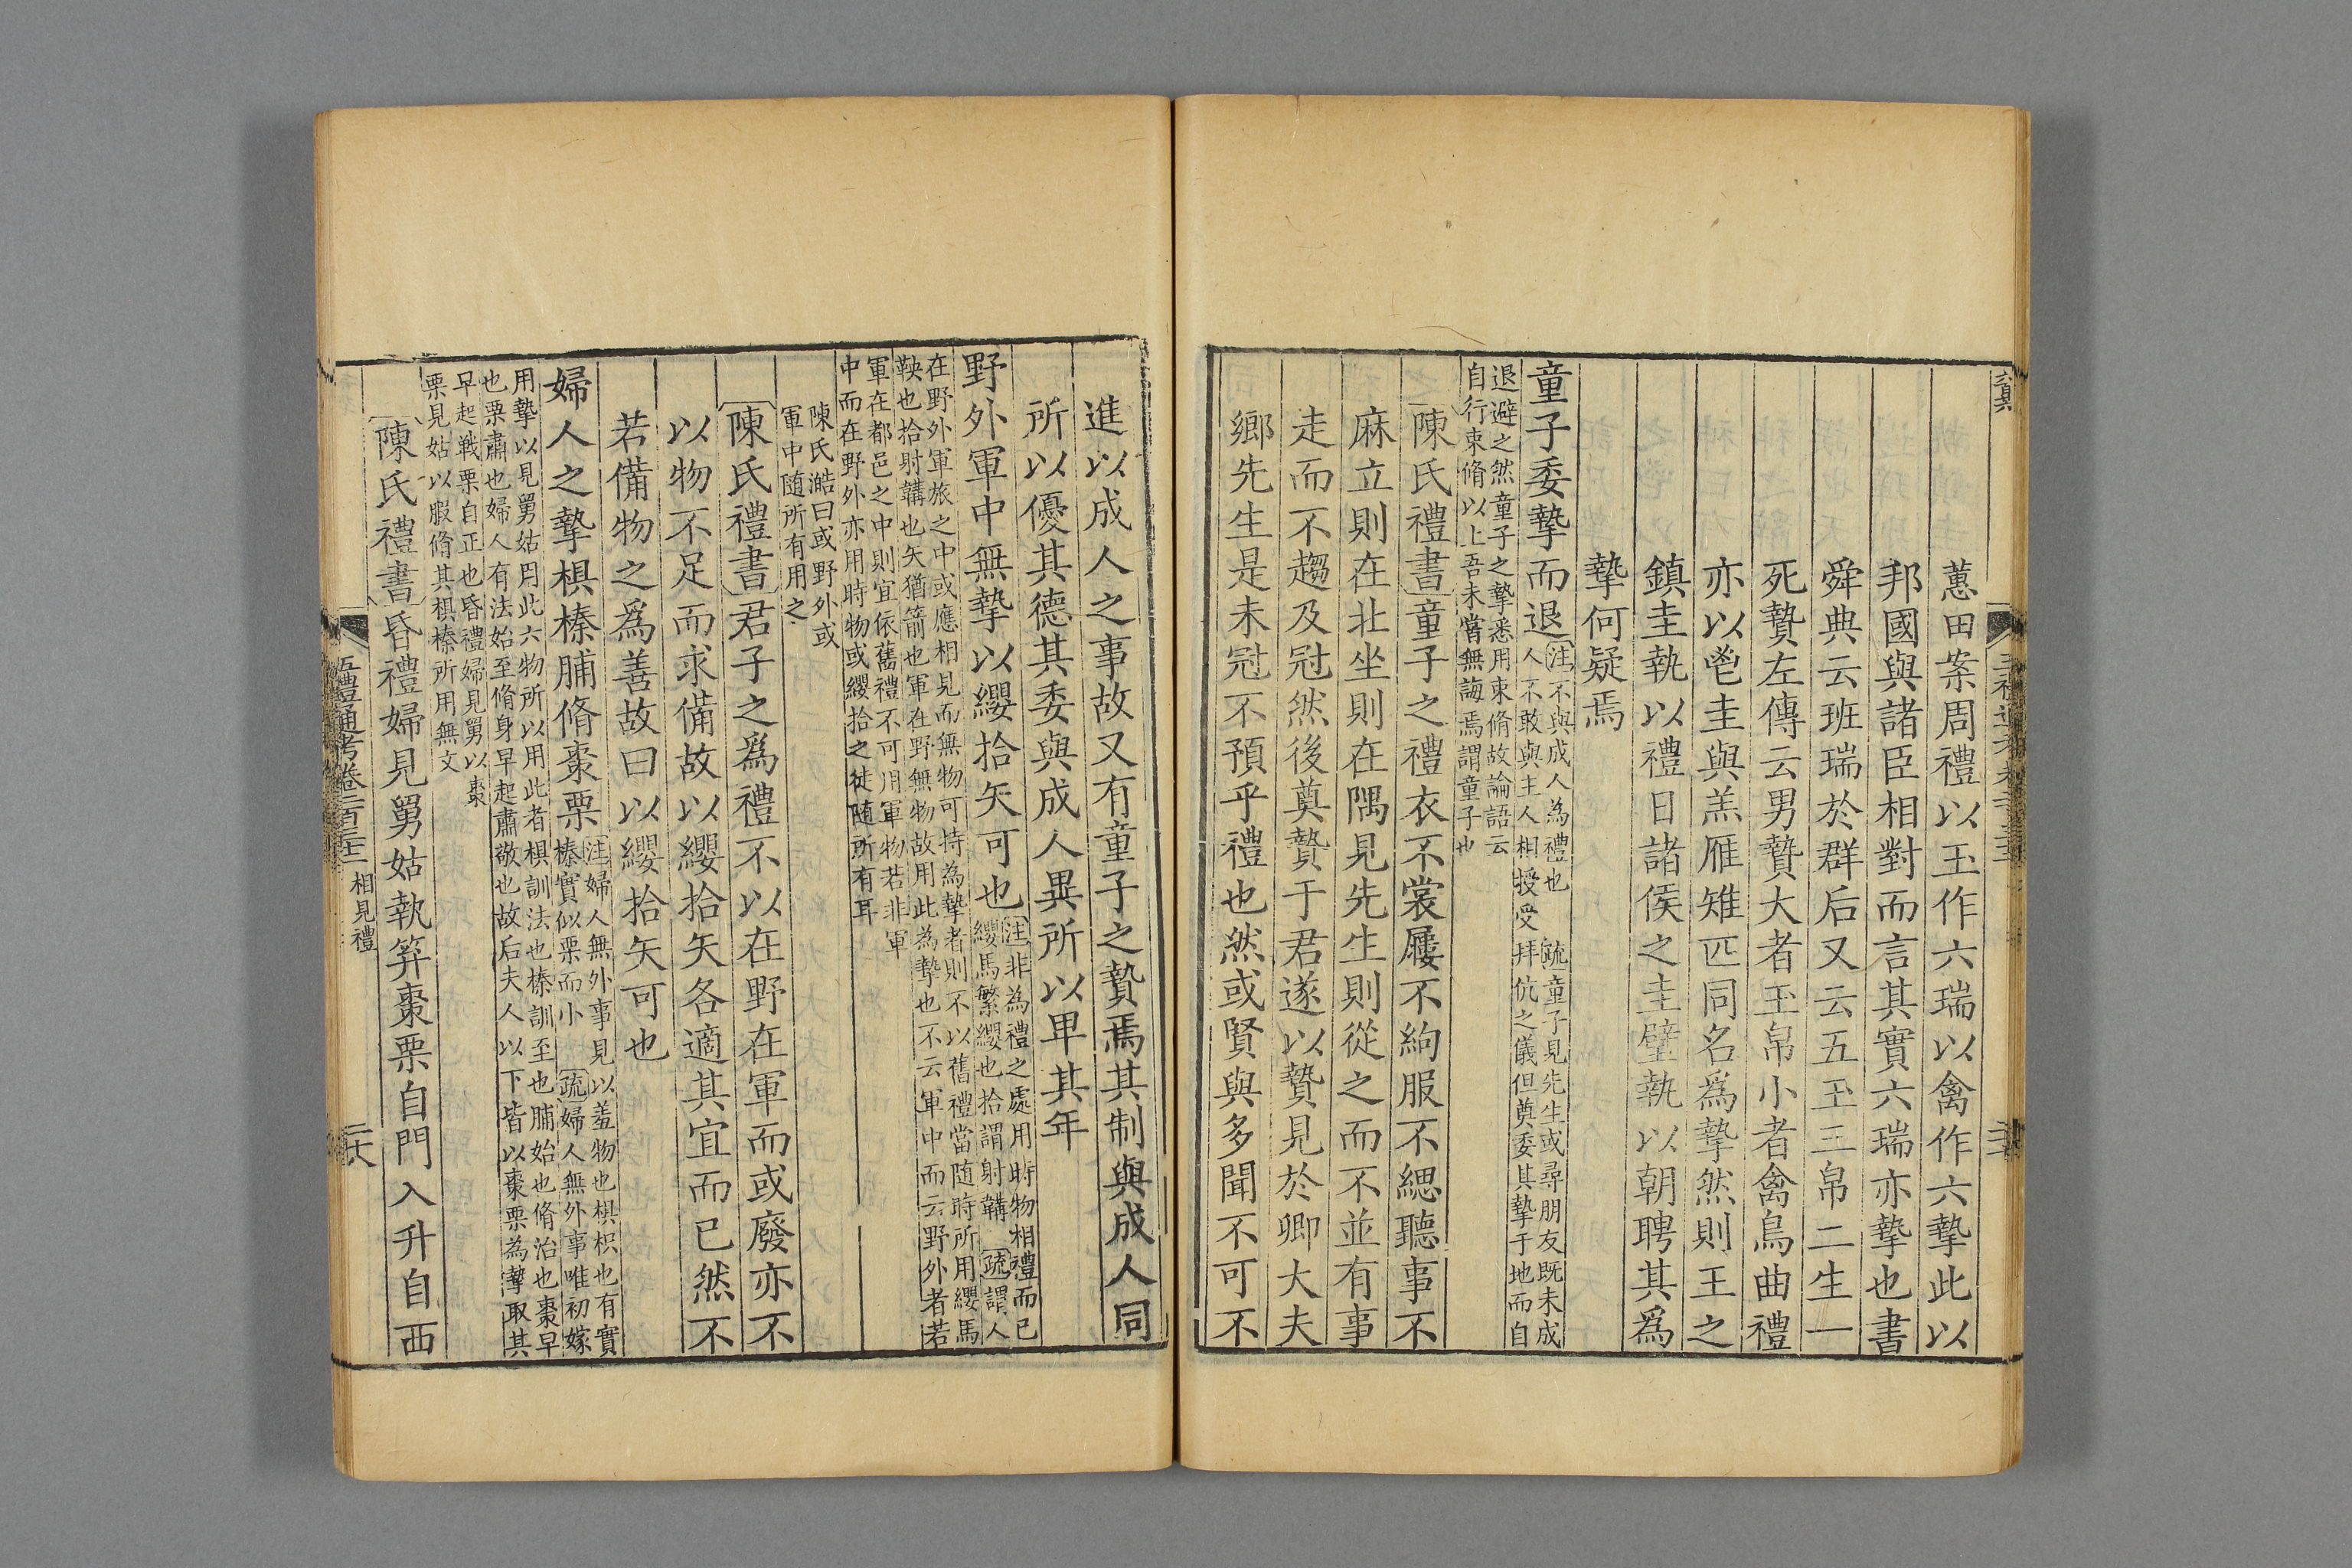 蕙田案周禮以玉作六瑞以禽作六摯此以
邦國與諸臣相對而言其實六瑞亦摯也書
舜典云班瑞於群后又云五玉三帛二生一
死贄左傳云男贄大者玉帛小者禽鳥曲禮
亦以鬯圭與羔雁雉匹同名爲摯然則王之
鎮圭執以禮日諸侯之圭璧執以朝聘其爲
摯何疑焉
童子委摯而退
注不與成人為禮也
疏童子見先生或尋朋友既未成
人不敢與主人相授受
拜伉之儀但奠委其摯于地而自
退避之然童子之摯悉用束脩故論語云
自行束脩以上吾未嘗無誨焉謂童子也
陳氏禮書童子之禮衣不裳屨不絇服不緦聽事不
麻立則在北坐則在隅見先生則從之而不並有事
走而不趨及冠然後奠贄于君遂以贄見於卿大夫
鄉先生是未冠不預乎禮也然或賢與多聞不可不
進以成人之事故又有童子之贄焉其制與成人同
所以優其德其委與成人異所以卑其年
野外軍中無摯以纓拾矢可也
注非為禮之處用時物相禮而已
纓馬繁纓也拾謂射韝
疏謂人
在野外軍旅之中或應相見而無物可持為摯者則不以舊禮當随時所用纓馬
鞅也拾射韝也矢猶箭也軍在野無物故用此為摯也不云軍中而云野外者若
軍在都邑之中則宜依舊禮不可用軍物若非軍
中而在野外亦用時物或纓拾之徒随所有耳
陳氏澔曰或野外或
軍中随所有用之
陳氏禮書君子之爲禮不以在野在軍而或廢亦不
以物不足而求備故以纓拾矢各適其宜而已然不
若備物之爲善故曰以纓拾矢可也
婦人之摯椇榛脯脩棗栗
注婦人無外事見以羞物也椇枳也有實
榛實似栗而小
疏婦人無外事唯初嫁
用摯以見舅姑用此六物所以用此者椇訓法也榛訓至也脯始也脩治也棗早
也栗肅也婦人有法始至脩身早起肅敬也故后夫人以下皆以棗栗為摯取其
早起戰栗自正也昏禮婦見舅以棗
栗見姑以腶脩其椇榛所用無文
陳氏禮書昏禮婦見舅姑執笲棗栗自門入升自西
五禮通考卷二百三十二
相見禮
二六